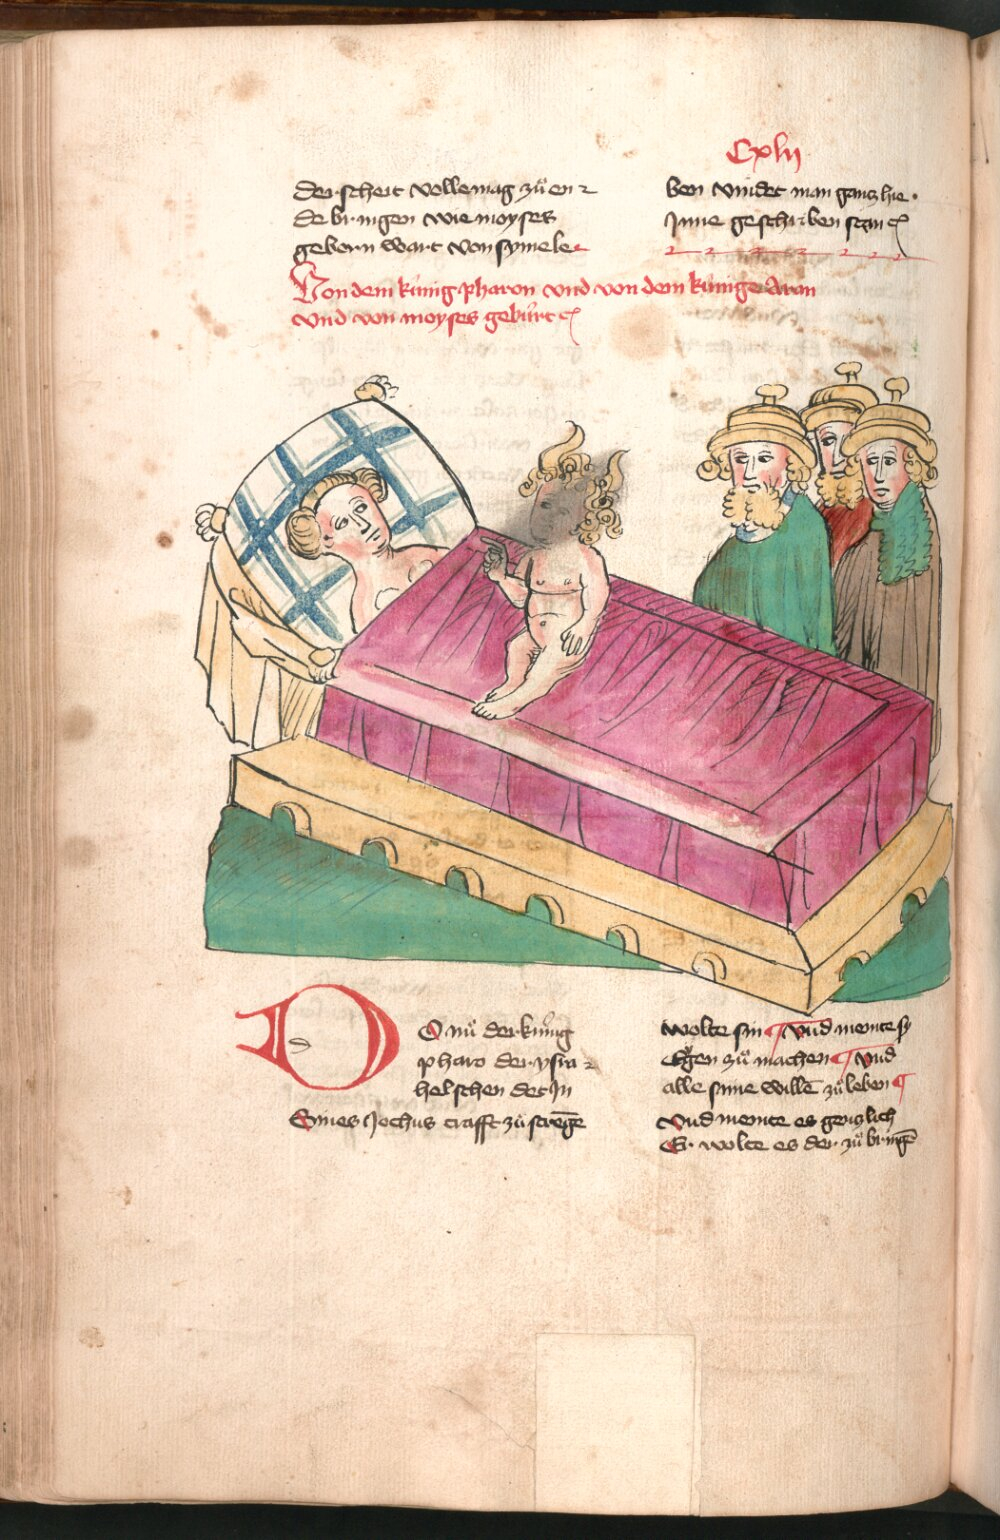 Cxlij
der scheit volle mag zuͦ en
de bringen wie moyses
geborn wart von symele
ben vindet man gantz hie
Inne geschriben stan
Von dem kúnig pharon vnd von dem kúnige Aran
vnd von moyses gebúrt
DO nuͦ der kúnig
pharo der ysra
helschen det In
Eines Jochus crafft zuͦ strēge
wolte sin vnd meinte sy
Eygen zuͦ machen vnd
alle sine willē zuͦ leben
vnd meinte es genzlich
Er wolte es der zuͦ bringē